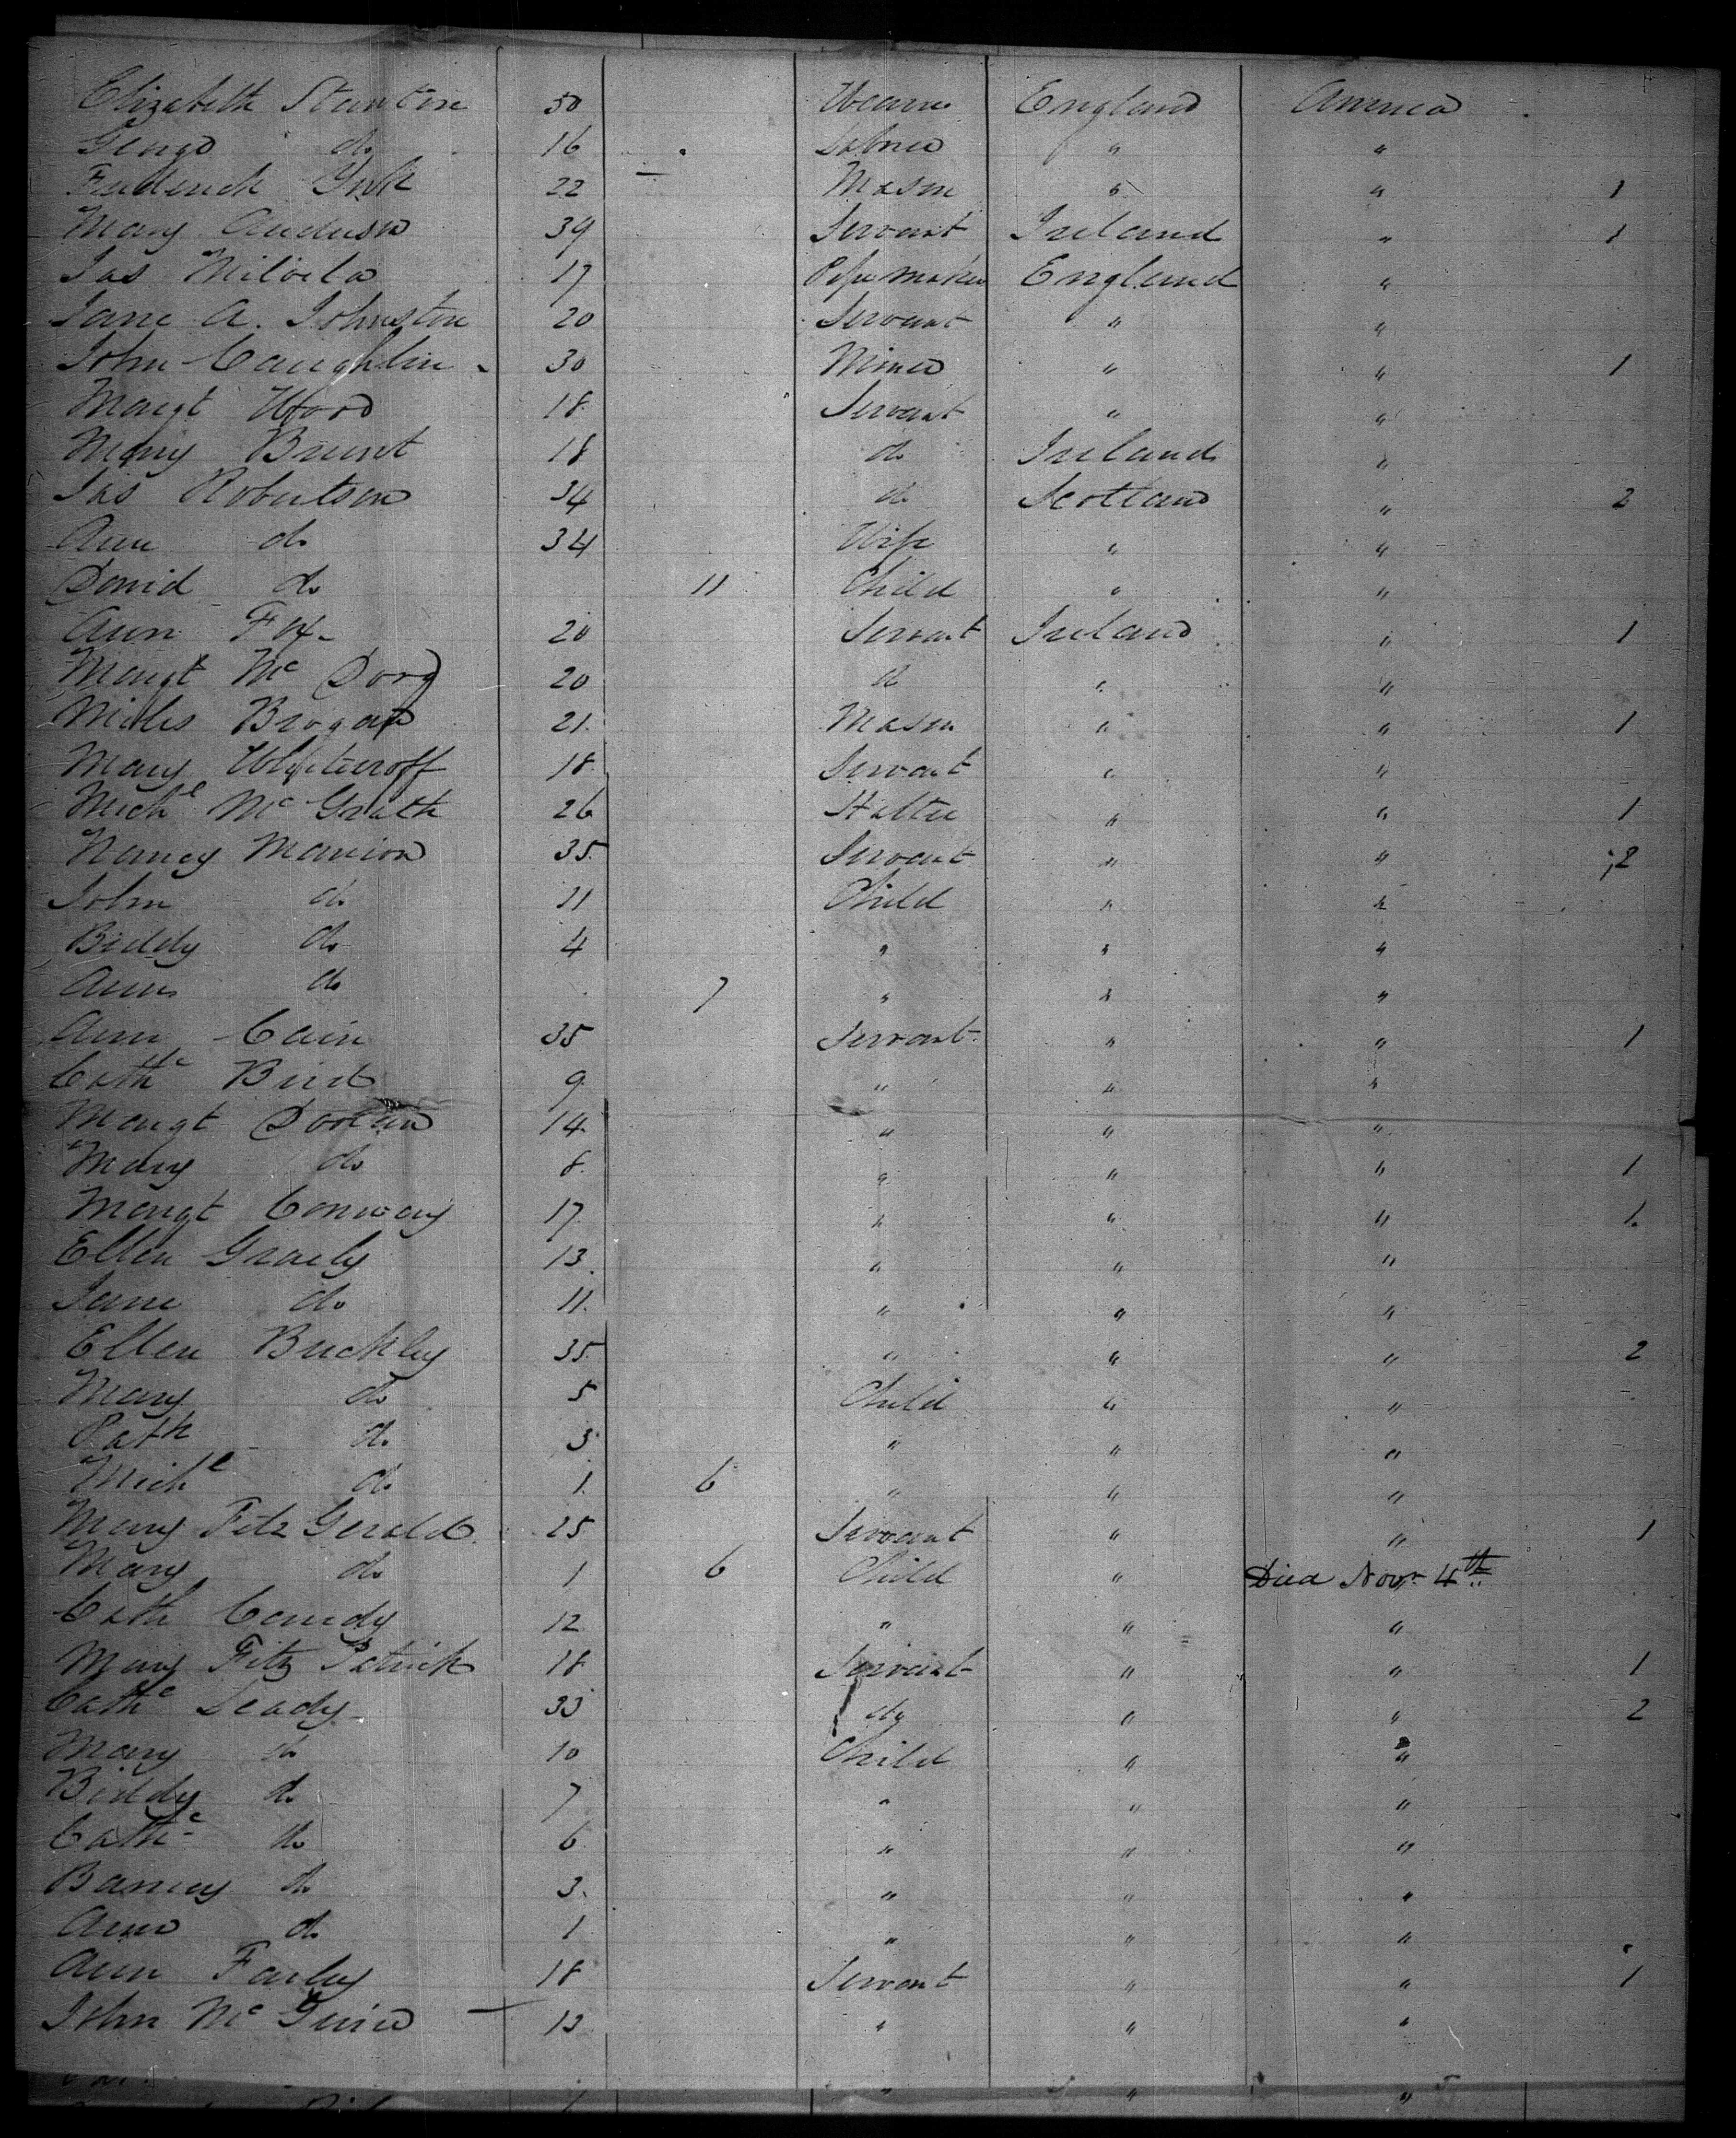 Elizabeth Stanton 50 England America
George do 16 Laborer " "
Frederick 22 Mason " " 1
Mary Anderson 39 Servant Ireland " 1
Jas 17 Pipe maker England "
Jane A. Johnston 20 Servant " "
John Caughlin 30 Miner " " 1
Margt Ward 18 Servant " "
Mary Brunt 18 do Ireland "
Jas Robertson 34 do Scotland " 2
Ann do 34 Wife " "
David do 11 Child " "
Ann Fox 20 Servant Ireland " 1
Margt Mc 20 do " "
Miles Brogan 21 Mason " " 1
Mary 18 Servant " "
Michl Mc Grath 26 Hatter " " 1
Nancy Manion 35 Servant " " 2
John do 11 Child " "
Biddy do 4 " " "
Ann do 7 " " "
Ann Cain 35 Servant " " 1
Cathe Bird 9 " " "
Margt Doolan 14 " " "
Mary do 8 " " " 1
Margt Conway 17 " " " 1
Ellen Graely 13 " " "
Jane do 11 " " "
Ellen Buckley 35 " " " 2
Mary do 5 Child " "
Patk do 3 " " "
Michl do 1 6 " " "
Mary Fitz Gerald 25 Servant " " 1
Mary do 1 6 Child " Died Novr 4th "
Cath 12 " " "
Mary Fitz Patrick 18 Servant " " 1
Cathe Leady 33 do " " 2
Mary do 10 Child " "
Biddy do 7 " " "
Cathe do 6 " " "
Barney do 3 " " "
Ann do 1 " " "
Ann Farley 18 Servant " " 1
John Mc Guire 13 " " "
" " "